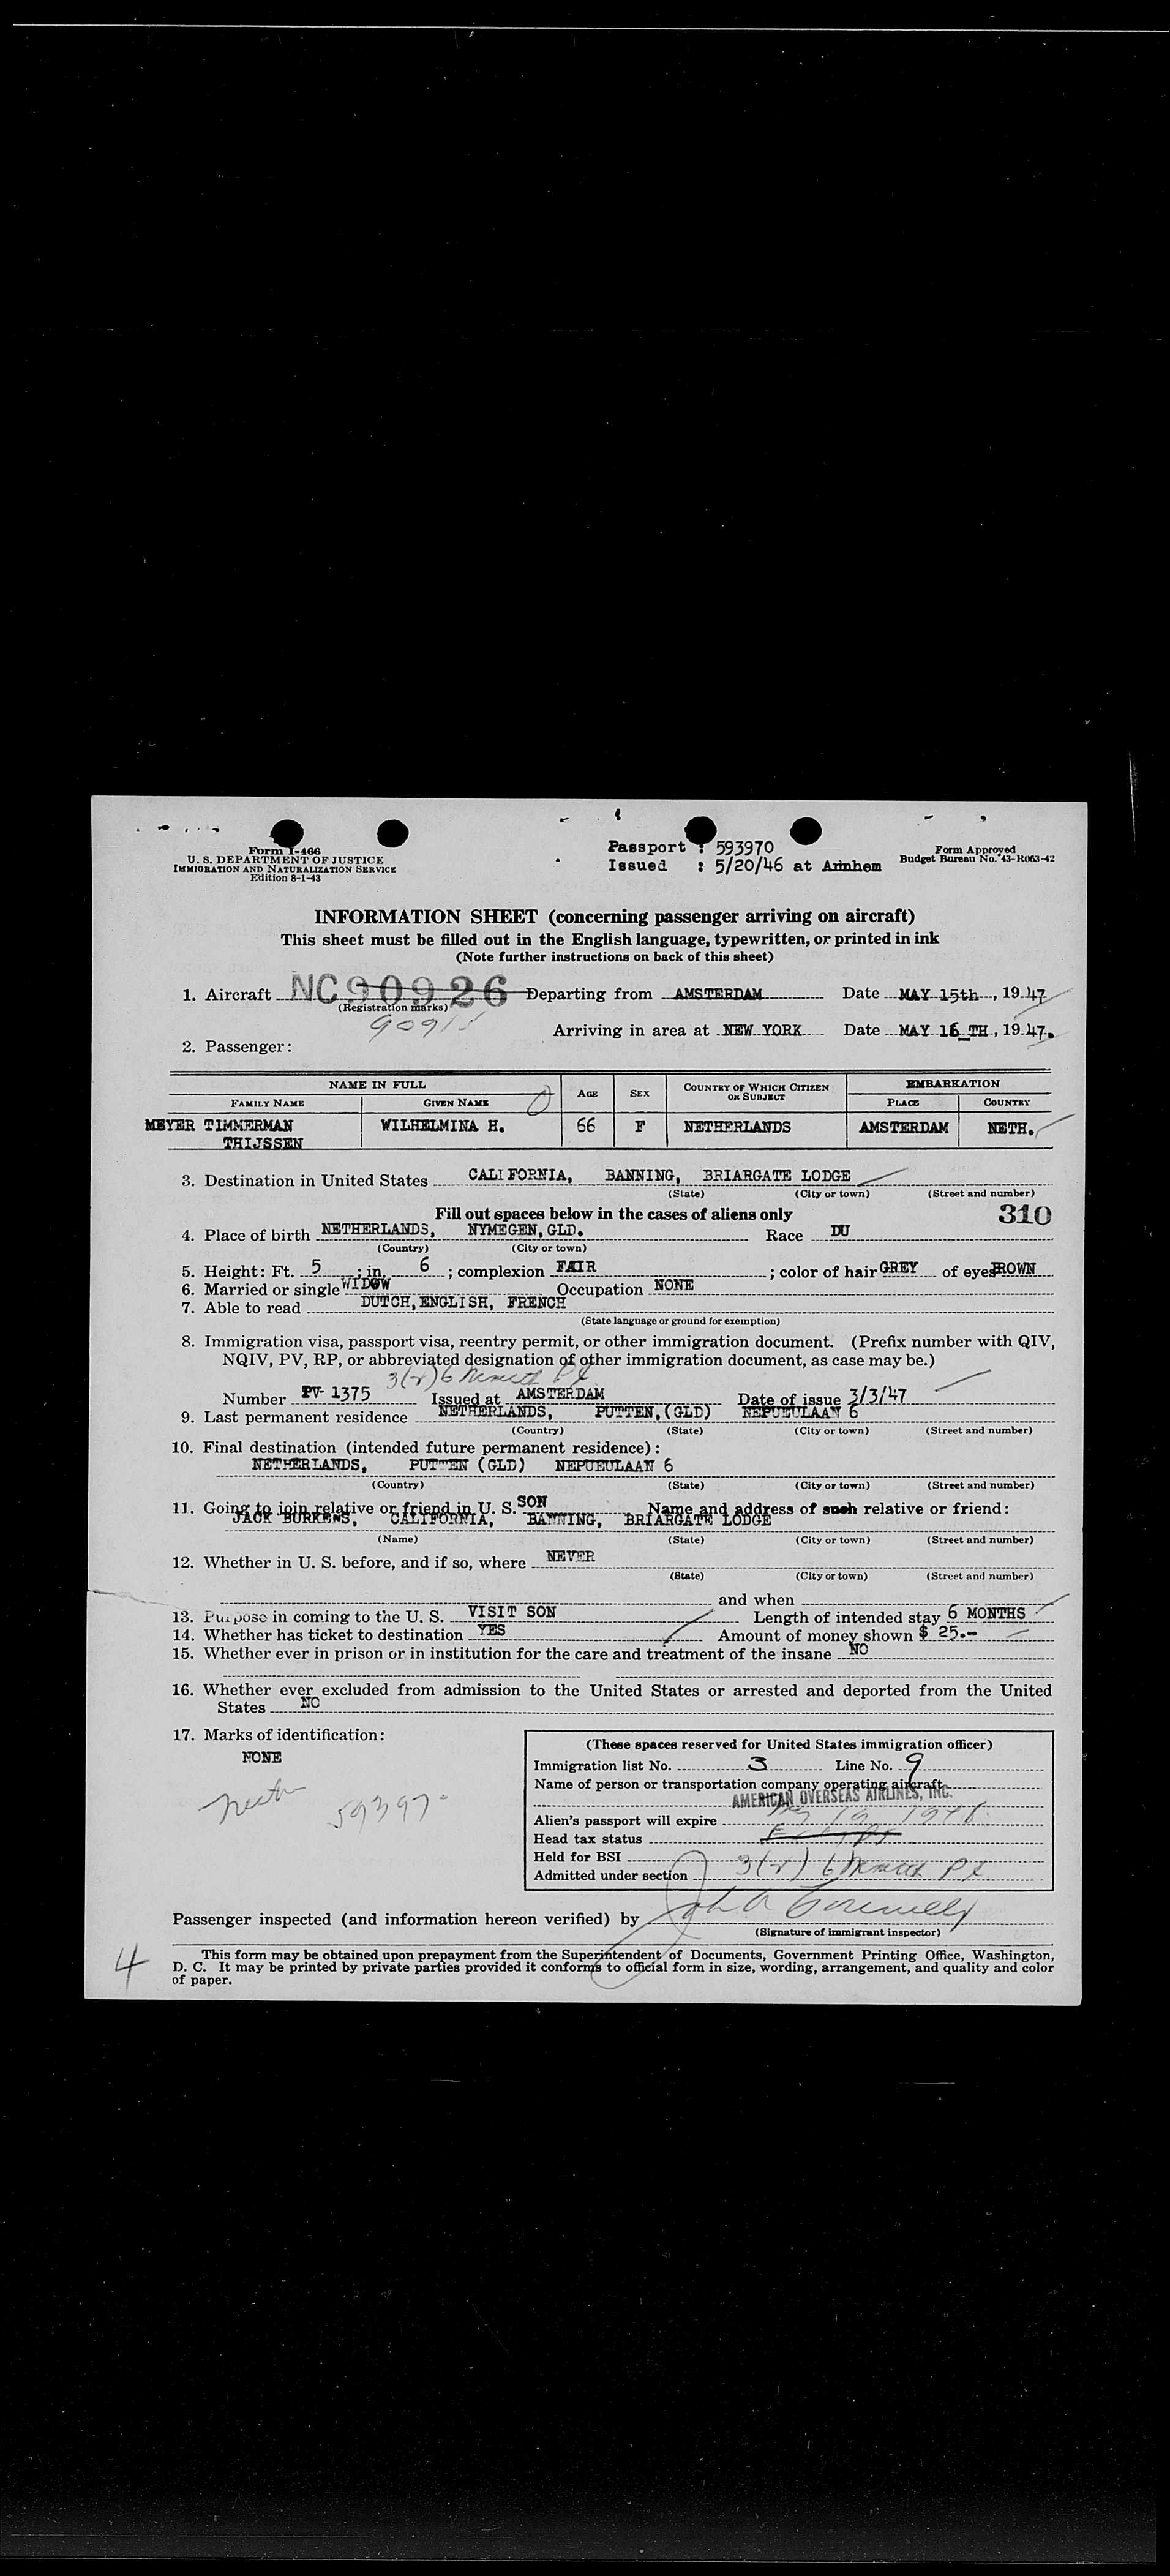 Form I-466
U. S. DEPARTMENT OF JUSTICE
IMMIGRATION AND NATURALIZATION SERVICE
Edition 8-1-43
Passport : 593970
Issued : 5/20/46 at Arnhem
Form Approved
Budget Bureau No. 43-R063-42
INFORMATION SHEET (concerning passenger arriving on aircraft)
This sheet must be filled out in the English language, typewritten, or printed in ink
(Note further instructions on back of this sheet)
1. Aircraft NC90926 Departing from AMSTERDAM Date MAY 15th, 1947
(Registration marks)
Arriving in area at NEW YORK Date MAY 16 TH, 1947.
2. Passenger:
NAME IN FULL AGE SEX COUNTRY OF WHICH CITIZEN OR SUBJECT EMBARKATION
FAMILY NAME GIVEN NAME PLACE COUNTRY
MEYER TIMMERMAN WILHELMINA H. 66 F NETHERLANDS AMSTERDAM NETH.
THIJSSEN
3. Destination in United States CALIFORNIA, BANNING, BRIARGATE LODGE
(State) (City or town) (Street and number)
Fill out spaces below in the cases of aliens only 310
4. Place of birth NETHERLANDS, NYMEGEN, GLD. Race DU
(Country) (City or town)
5. Height: Ft. 5 ; in. 6 ; complexion FAIR ; color of hair GREY of eyes BROWN
6. Married or single WIDOW Occupation NONE
7. Able to read DUTCH, ENGLISH, FRENCH
(State language or ground for exemption)
8. Immigration visa, passport visa, reentry permit, or other immigration document. (Prefix number with QIV,
NQIV, PV, RP, or abbreviated designation of other immigration document, as case may be.)
Number PV- 1375 Issued at AMSTERDAM Date of issue 3/3/47
9. Last permanent residence NETHERLANDS, PUTTEN, (GLD) NEPUEULAAN 6
(Country) (State) (City or town) (Street and number)
10. Final destination (intended future permanent residence):
NETHERLANDS, PUTTEN (GLD) NEPUEULAAN 6
(Country) (State) (City or town) (Street and number)
11. Going to join relative or friend in U. S. SON Name and address of such relative or friend:
JACK BURKENS, CALIFORNIA, BANNING, BRIARGATE LODGE
(Name) (State) (City or town) (Street and number)
12. Whether in U. S. before, and if so, where NEVER
(State) (City or town) (Street and number)
and when
13. Purpose in coming to the U. S. VISIT SON Length of intended stay 6 MONTHS
14. Whether has ticket to destination YES Amount of money shown $ 25.-
15. Whether ever in prison or in institution for the care and treatment of the insane NO
16. Whether ever excluded from admission to the United States or arrested and deported from the United
States NO
17. Marks of identification:
NONE
59397
(These spaces reserved for United States immigration officer)
Immigration list No. 3 Line No. 9
Name of person or transportation company operating aircraft
AMERICAN OVERSEAS AIRLINES, INC.
Alien's passport will expire
Head tax status
Held for BSI
Admitted under section 3(2) 6
Passenger inspected (and information hereon verified) by
(Signature of immigrant inspector)
4
This form may be obtained upon prepayment from the Superintendent of Documents, Government Printing Office, Washington,
D. C. It may be printed by private parties provided it conforms to official form in size, wording, arrangement, and quality and color
of paper.